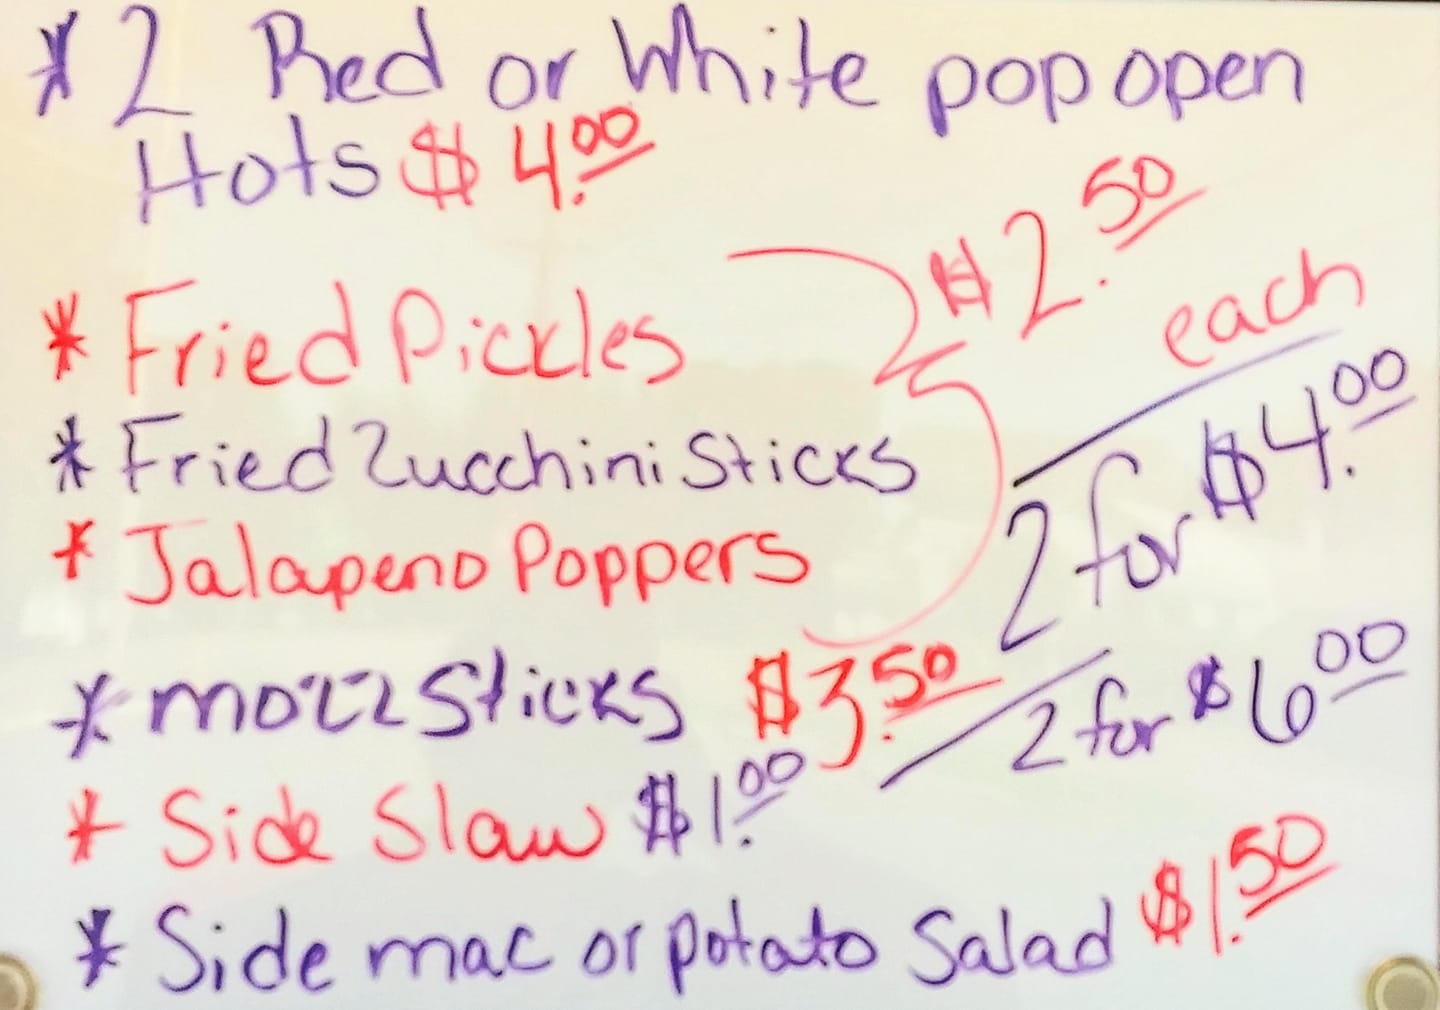 * 2 Red or White pop open
Hots $4.00
* Fried Pickles
$2.50
each
* Fried Zucchini Sticks
2 for $4.00
* Jalapeno Poppers
* mozz Sticks $3.50
2 for $6.00
* Side Slaw $1.00
* Side mac or potato Salad $1.50